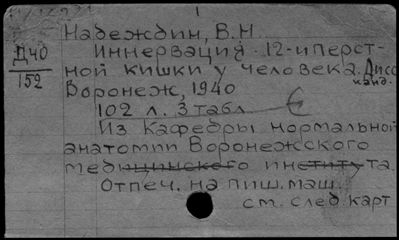 1
Надеждин, В.Н.
Д40
152
Иннервация 12-иперст-
ной кишки у человека. Дисс
канд.
Воронеж, 1940
102 л. 3 табл
Из Кафедры нормальной
анатомии Воронежского
медицинского института.
Отпеч. на пиш. маш.
см. след карт